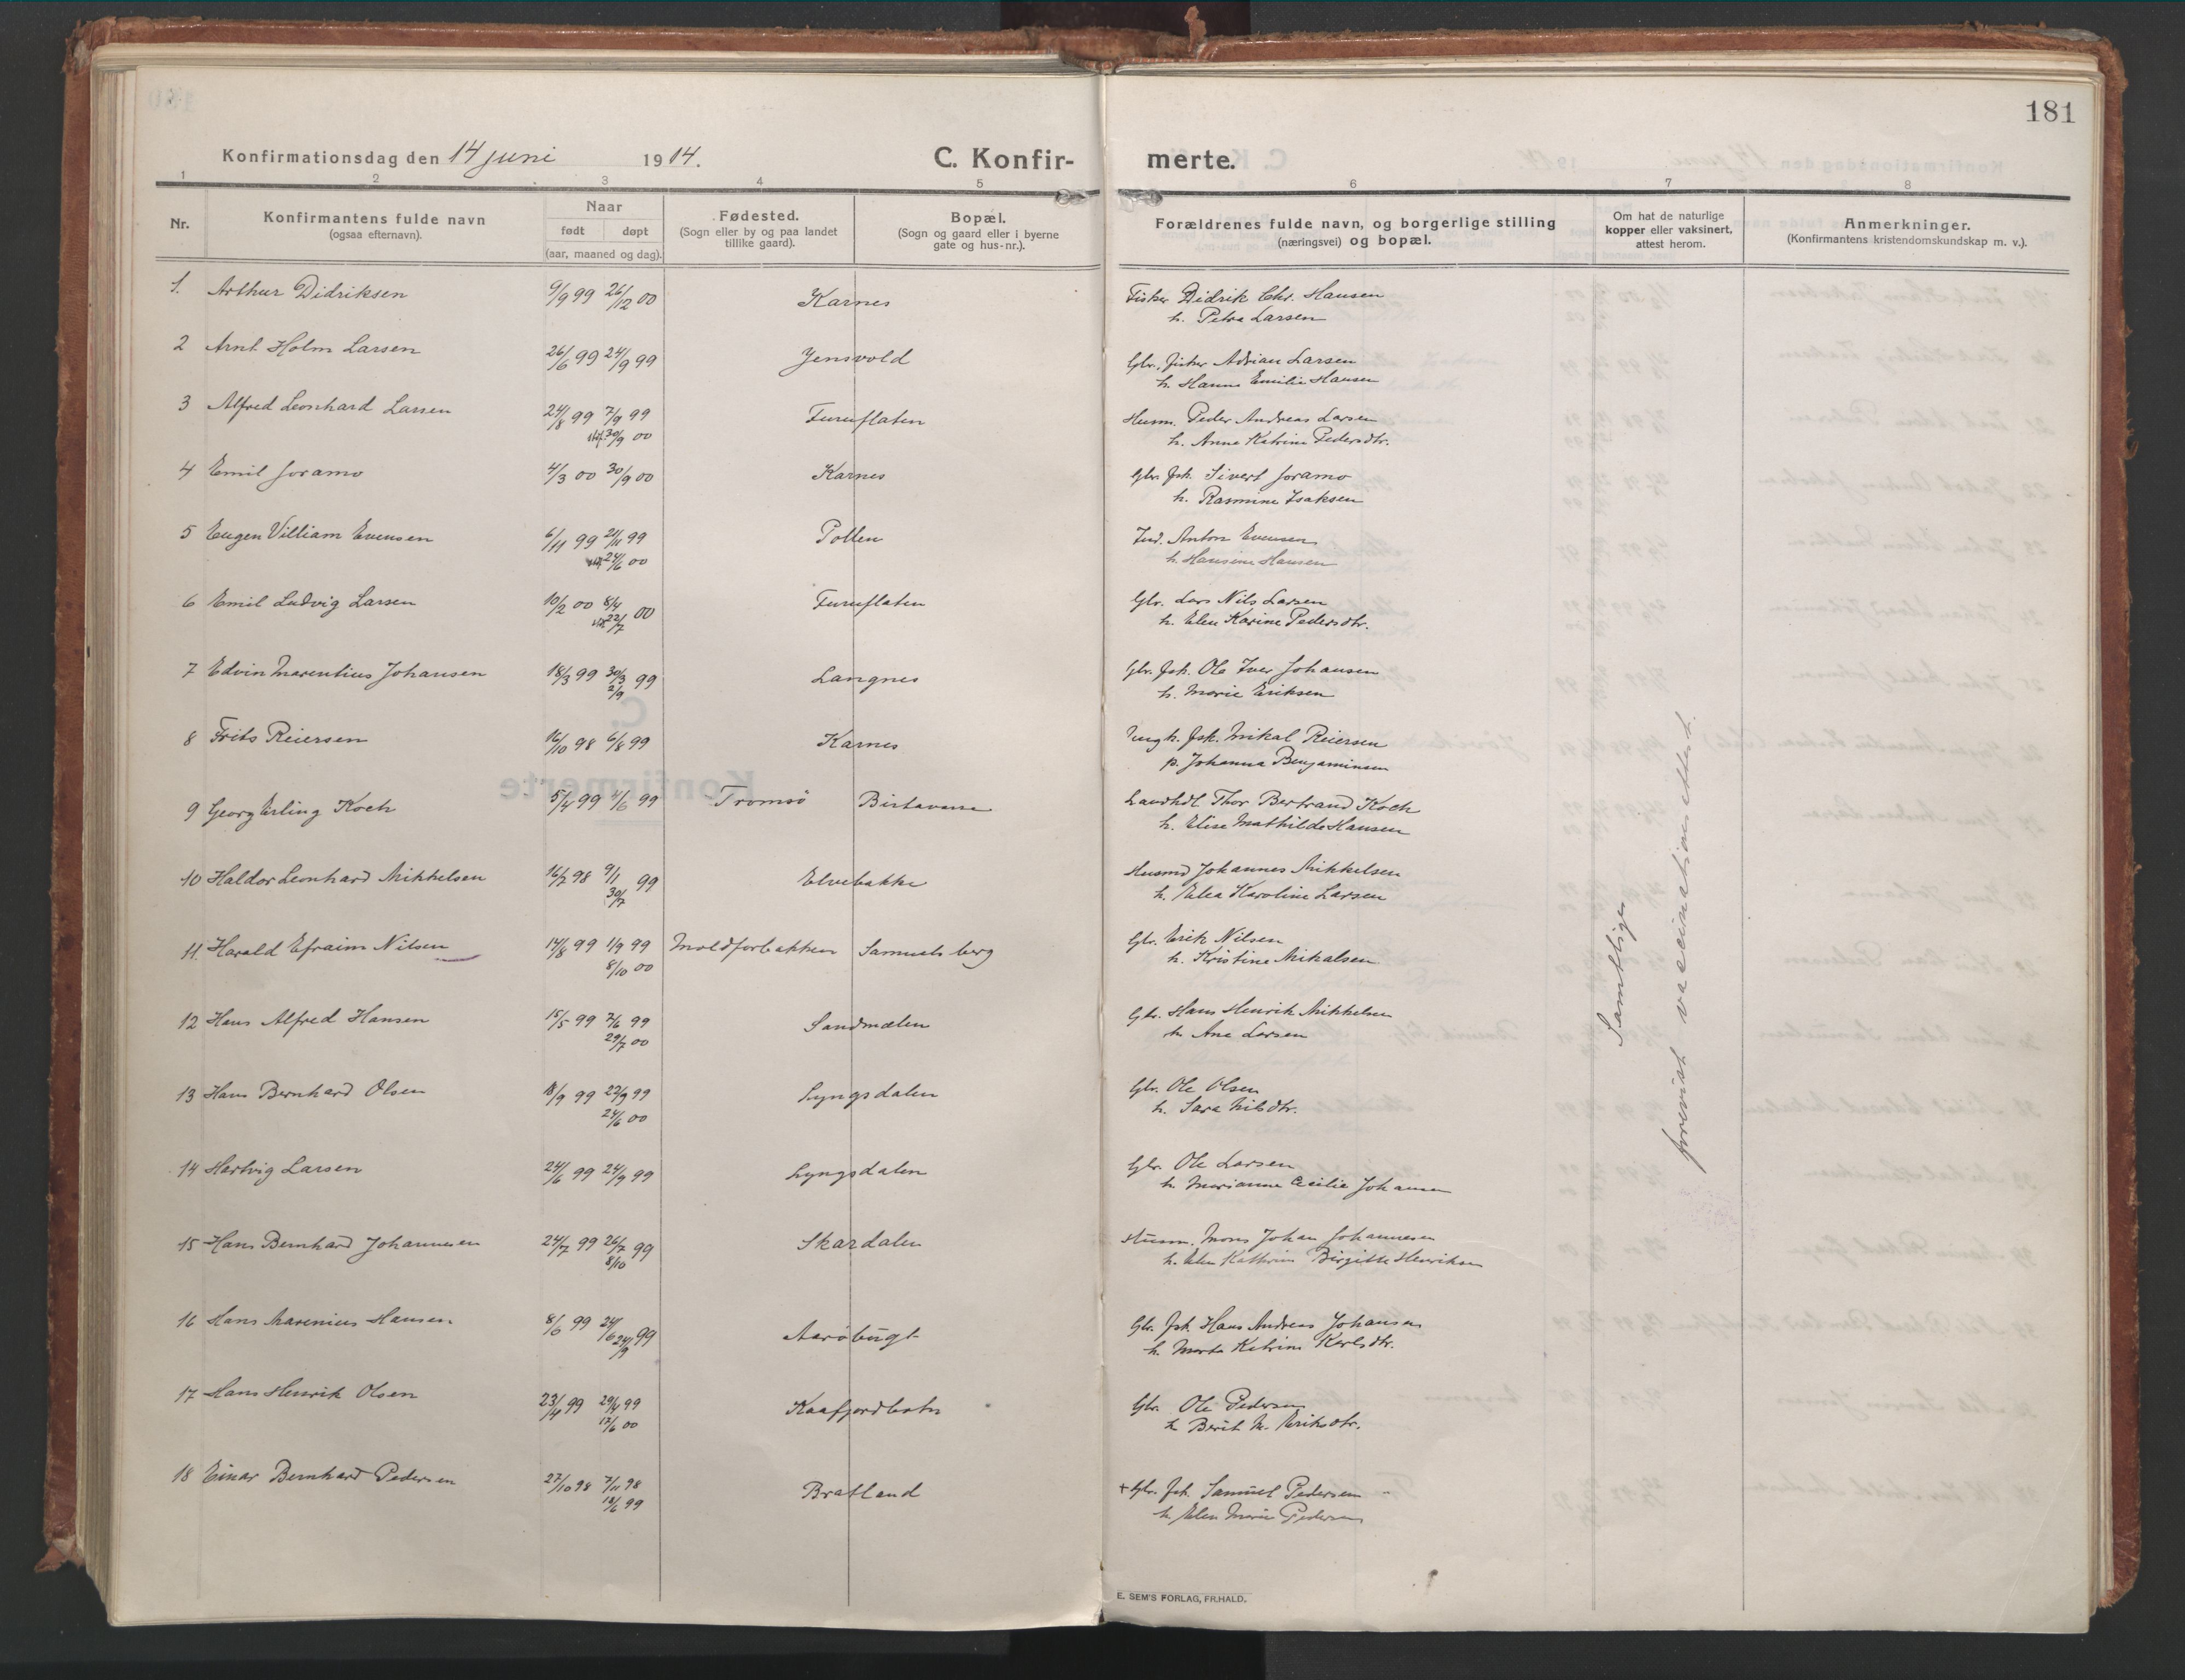 181
Konfirmationsdag den 14 juni 1914.
C. Konfir-
merte.
1 2 3 4 5 6 7 8
Nr.
Konfirmantens fulde navn
(ogsaa efternavn).
Naar
født døpt
(aar, maaned og dag).
Fødested.
(Sogn eller by og paa landet
tillike gaard).
Bopæl.
(Sogn og gaard eller i byerne
gate og hus-nr.).
Forældrenes fulde navn, og borgerlige stilling
(næringsvei) og bopæl.
Om hat de naturlige
kopper eller vaksinert,
attest herom.
Anmerkninger.
(Konfirmantens kristendomskundskap m. v.).
1. Arthur Didriksen 9/9 99 26/12 00 Karnes Fisker Didrik Chr. Hansen
h. Petra Larsen
2 Arnt Holm Larsen 26/6 99 24/9 99 Jensvold Gbr. fisker Adrian Larsen
h. Hanna Emilie Hansen
3 Alfred Leonhard Larsen 24/8 99 7/9 99 Furuflaten Husm. Peder Andreas Larsen
30/9 00 h. Anne Katrine Pedersdtr.
4 Emil Joramo 4/3 00 30/9 00 Karnes Gbr. fsk. Sivert Joramo
h. Rasmine Isaksen
5 Eugen Villiam Evensen 6/11 99 21/11 99 Pollen Ind. Anton Evensen
24/6 00 h. Hansine Hansen
6 Emil Ludvig Larsen 10/2 00 8/4 00 Furuflaten Gbr. Lars Nils Larsen
22/7 h. Elen Karine Pedersdtr.
7 Edvin Marentius Johansen 18/3 99 30/3 99 Langnes Gbr. fsk. Ole Iver Johansen
2/9 h. Marie Eriksen
8 Frits Reiersen 16/10 98 6/8 99 Karnes Ungk. fsk. Mikal Reiersen
p. Johanna Benjaminsen
9 Georg Erling Koch 5/4 99 4/6 99 Tromsö Birtavarre Landhdl. Thor Bertrand Koch
h. Elise Mathilde Hansen
10 Haldor Leonhard Mikkelsen 16/7 98 9/1 99 Elvebakke Husmd Johannes Mikkelsen
30/7 h. Elea Karoline Larsen
11. Harald Efraim Nilsen 14/8 99 1/9 99 Moldforbakken Samuelsberg Gbr. Erik Nilsen
8/10 00 h. Kristine Mikalsen
12 Hans Alfred Hansen 15/5 99 7/6 99 Sandmælen Gbr. Hans Henrik Mikkelsen
29/7 00 h. Ane Larsen
13 Hans Bernhard Olsen 18/9 99 22/9 99 Lyngsdalen Gbr. Ole Olsen
24/6 00 h. Sara Nilsdtr.
14 Hartvig Larsen 24/6 99 24/9 99 Lyngsdalen Gbr. Ole Larsen
h. Marianne Cecilie Johansen
15 Hans Bernhard Johannesen 24/7 99 26/7 99 Skardalen Husm. Mons Johan Johannesen
8/10 h. Elen Kathrine Birgitte Henriksen
16 Hans Marenius Hansen 8/6 99 24/6 24/9 99 Aaröbugt Gbr. fsk. Hans Andreas Johansen
h. Marta Katrine Karlsdtr.
17 Hans Henrik Olsen 23/4 99 29/4 99 Kaafjordbotn Gbr. Ole Pedersen
17/6 00 h. Berit M. Eriksdtr.
18 Einar Bernhard Pedersen 27/10 98 7/11 98 Bratland + Gbr. fsk. Samuel Pedersen
18/6 99 h. Elen Marie Pedersen
Samtlige
forevist vaccinationsattest.
E. SEM'S FORLAG, FR.HALD.